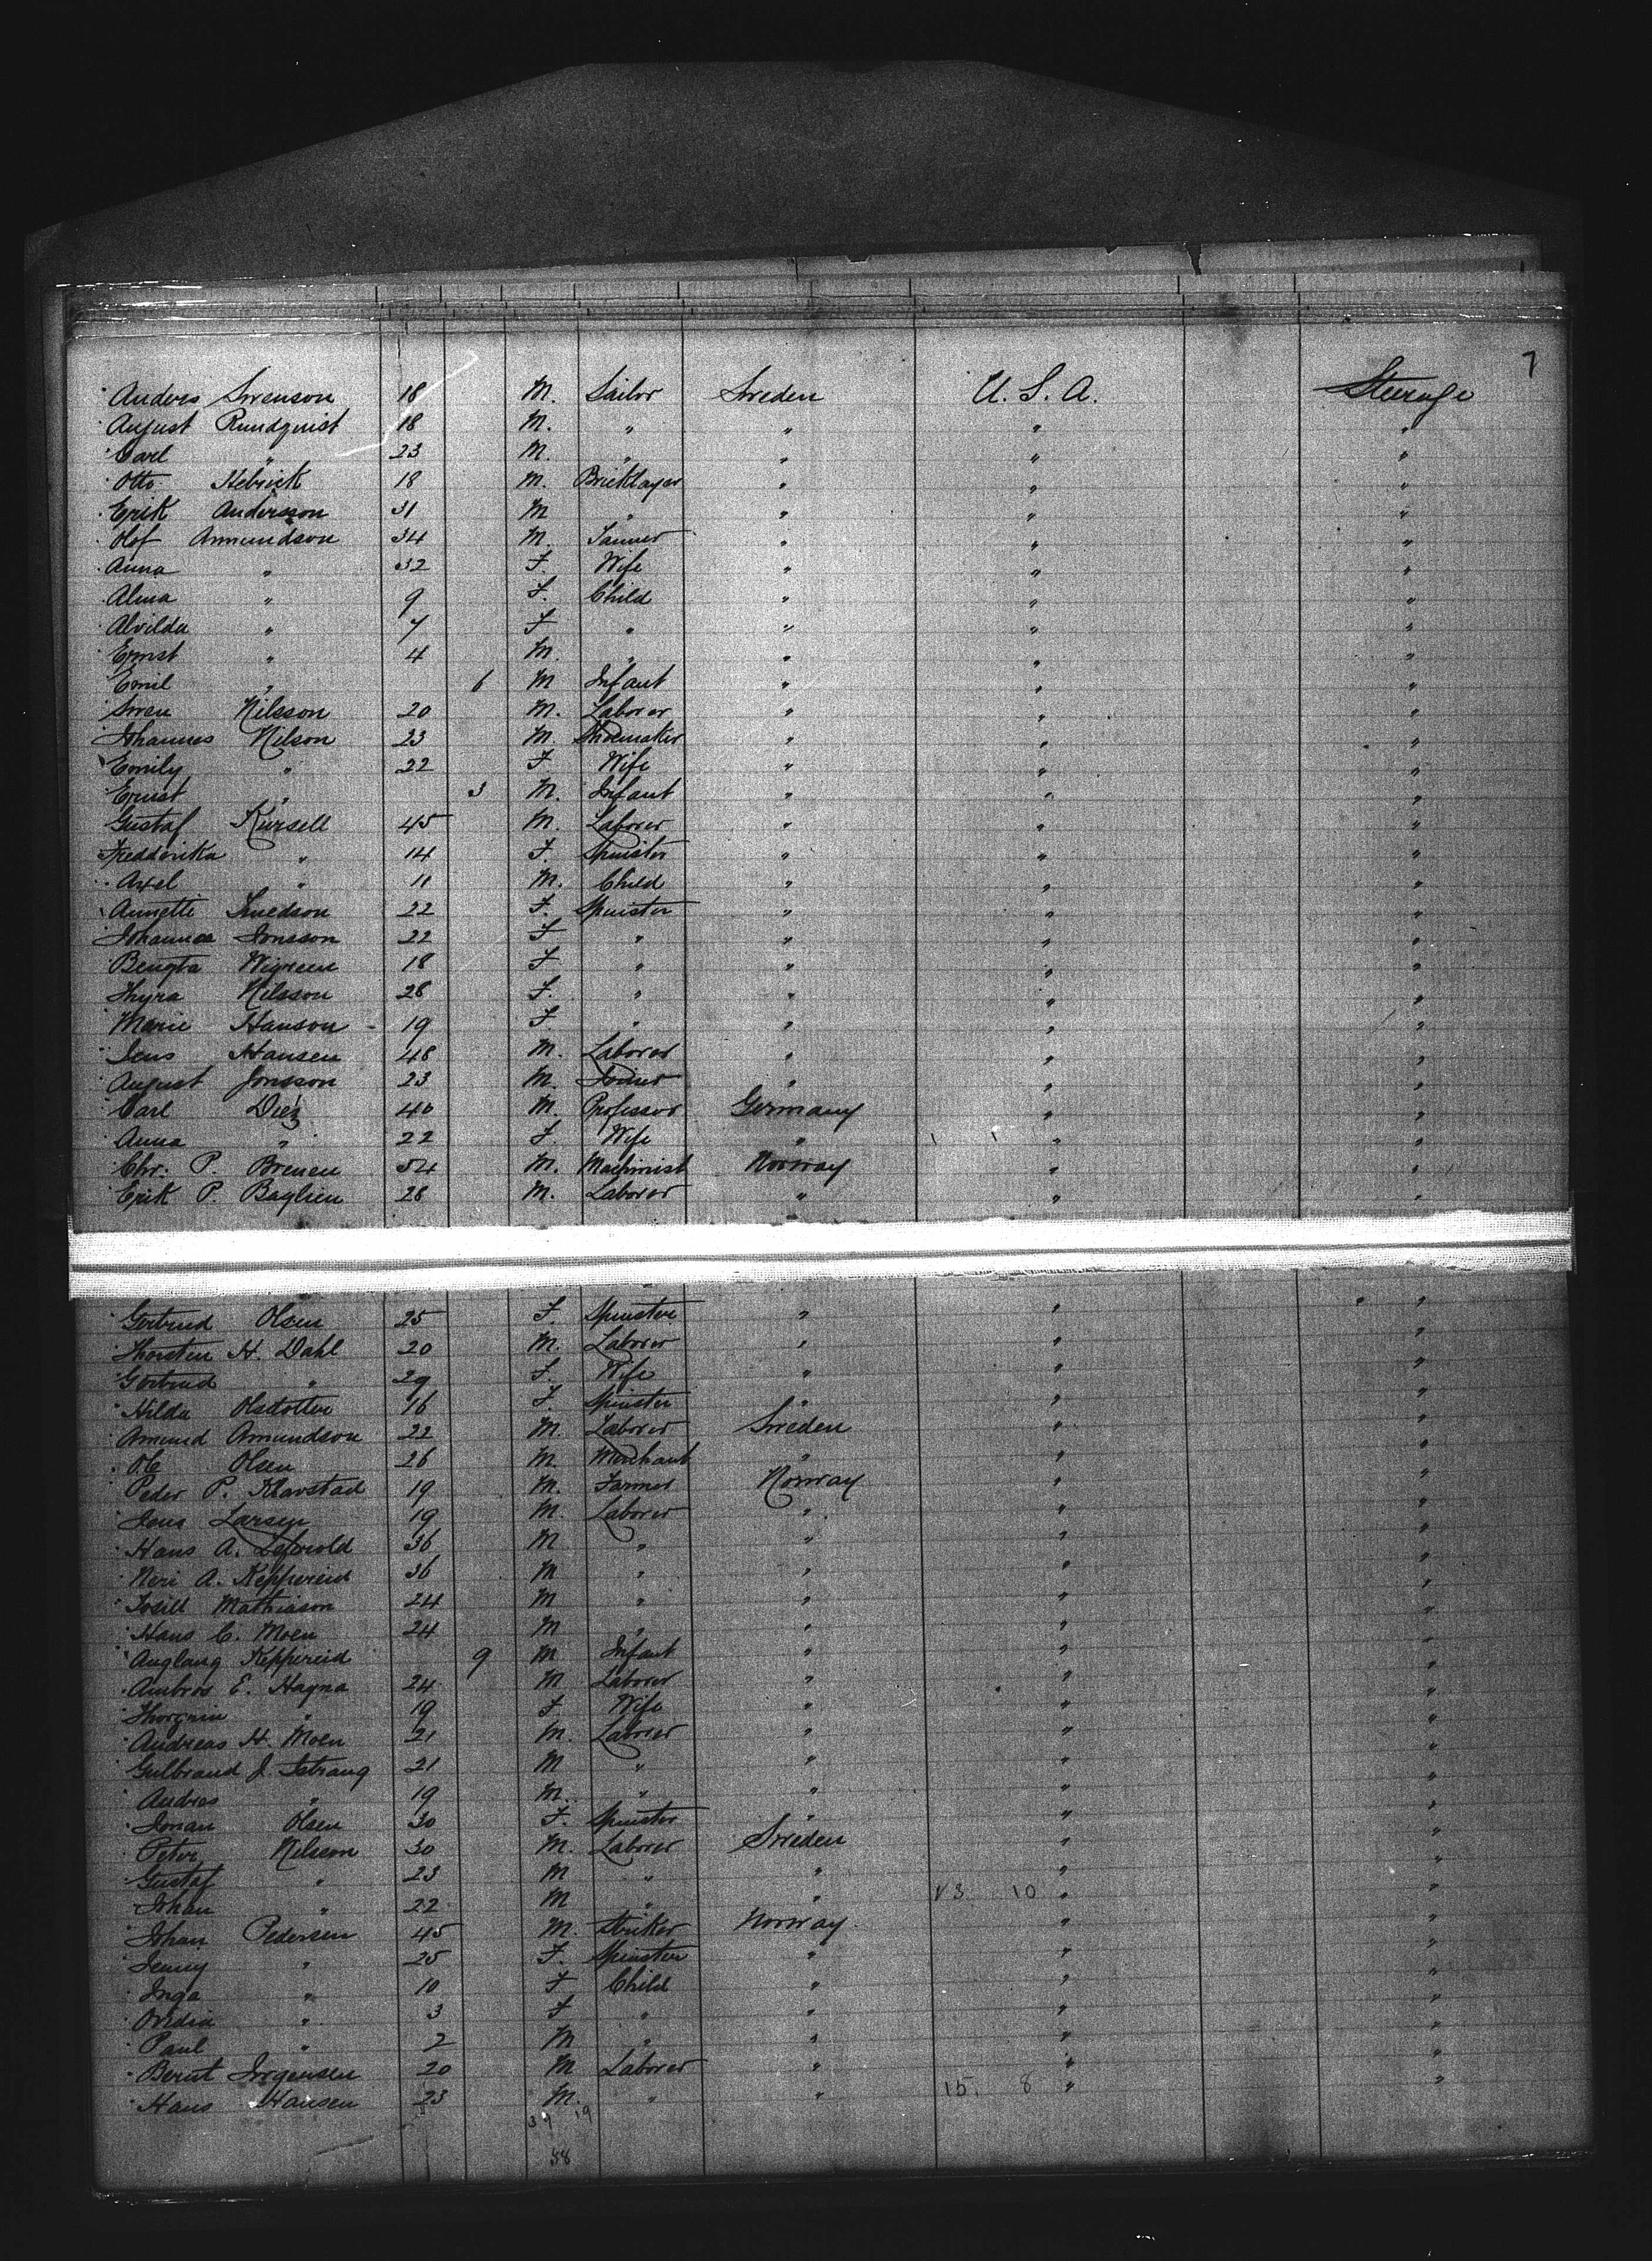 7
Anders Svenson 18 M. Sailor Sweden U. S. A. Steerage
August Rundquist 18 M. " " " "
Carl " 23 M. " " " "
Otto Hebrick 18 M. Bricklayer " " "
Erik Andersson 31 M " " " "
Olof Ammundson 34 M. " " "
Anna " 32 F. Wife " " "
Alma " 9 F. Child " " "
Alvilda " 7 F " " " "
Ernst " 4 M. " " " "
Emil " 6 M Infant " " "
Swen Nilsson 20 M. Laborer " " "
Johannes Nilson 23 M. Shoemaker " " "
Emily " 22 F Wife " " "
Ernst " 3 M. Infant " " "
Gustaf Kursell 45 M. Laborer " " "
Fredderika " 14 F. Spinster " " "
Axel " 11 M. Child " " "
Annette 22 F. Spinster " " "
Johanna Jonsson 22 F " " " "
Bengta Wigreen 18 F " " " "
Thyra Nilsson 28 F. " " " "
Marie Hanson 19 F. " " " "
Jens Hansen 48 M. Laborer " " "
August Jonsson 23 M. " " "
Carl Diez 40 M. Professor Germany " "
Anna " 22 F. Wife " " "
Chr. P. Brenen 54 M. Machinist Norway " "
Erik P. Baglien 28 M. Laborer " " "
Gertrud Olsen 25 F. Spinster " " "
Thorsten H. Dahl 20 M. Laborer " " "
Gertrud " 29 F. Wife " " "
Hilda Olsdotter 16 F. Spinster " " "
Amund Amundson 22 M. Laborer Sweden " "
Ole Olsen 26 M. Merchant " " "
Peder P. Klavstad 19 M. Farmer Norway " "
Jens Larsen 19 M. Laborer " " "
Hans A. 36 M " " " "
Neri A. Keppereid 36 M " " " "
Mathiason 24 M " " " "
Hans C. Moen 24 M " " " "
Keppereid 9 M Infant " " "
Ambros E. Hagna 24 M Laborer " " "
" 19 F Wife " " "
Andreas H. Moen 21 M. Laborer " " "
Gulbrand J. 21 M " " " "
Andres " 19 M. " " " "
Olsen 30 F. Spinster " " "
Peter Nilsson 30 M. Laborer Sweden " "
Gustaf " 23 M " " " "
Johan " 22 M " " 13 10 " "
Johan Pedersen 45 M. Striker Norway " "
Jenny " 25 F. Spinster " " "
Inga " 10 F Child " " "
Ovidia " 3 F " " " "
Paul " 2 M " " " "
Bernt Jorgensen 20 M Laborer " " "
Hans Hansen 23 M. " " 15. 8 " "
39 19
58